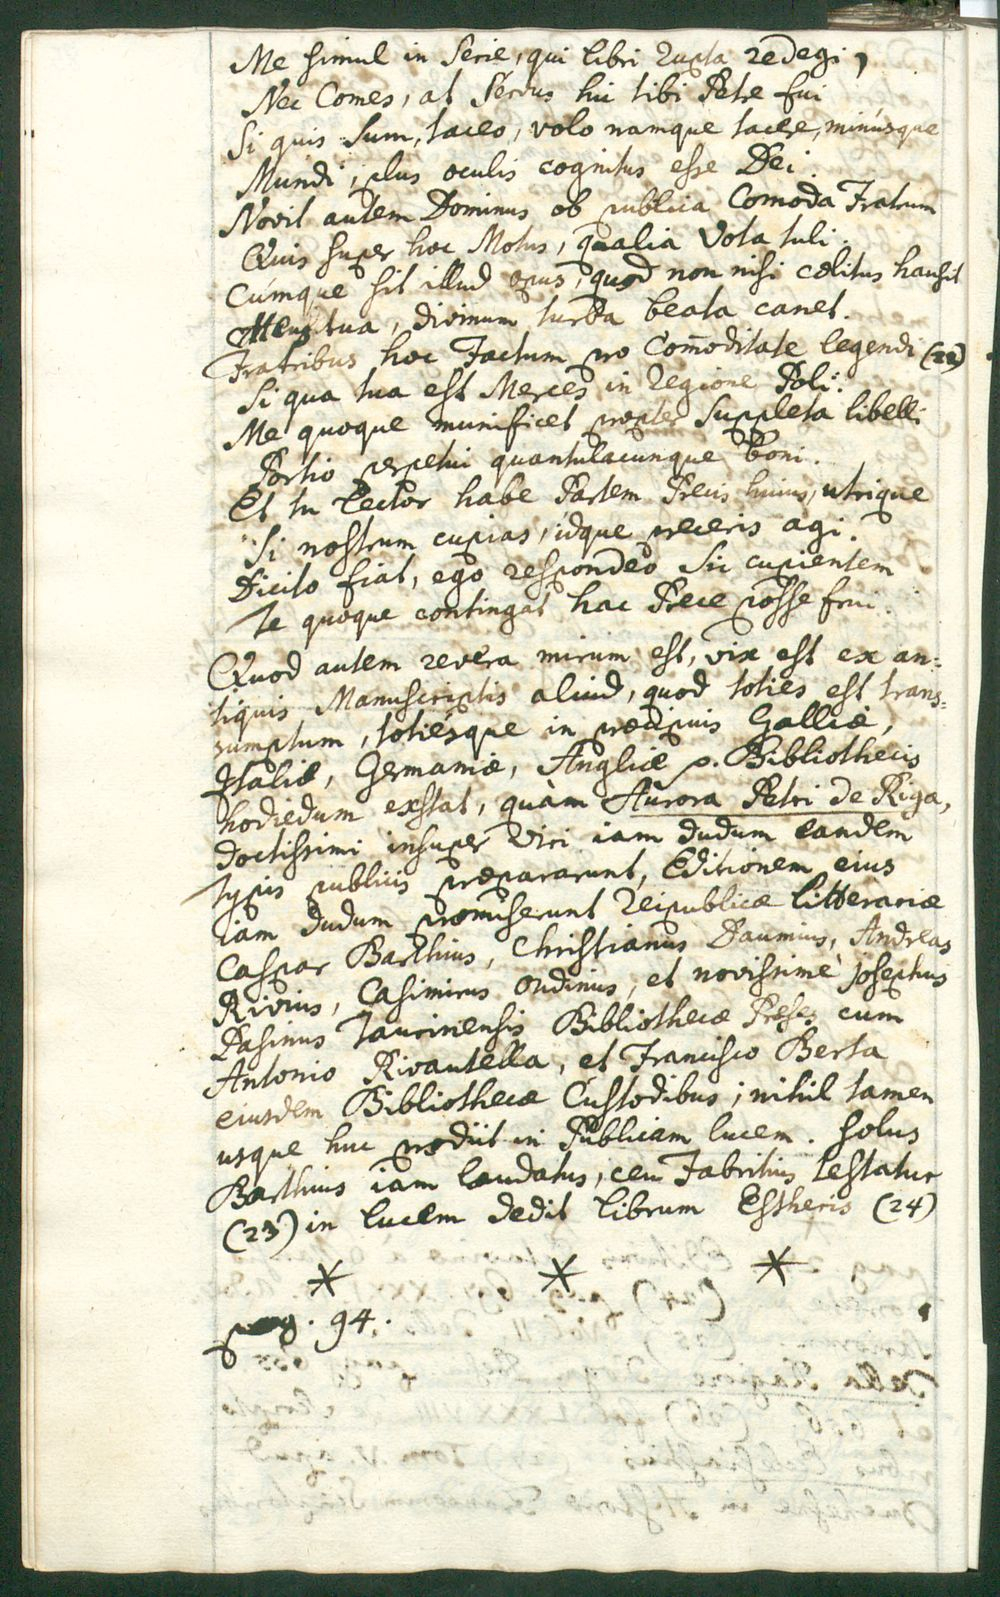 Me simul in Serie, qui libri Iuxta redegi,
Nec Comes, at Servus hic tibi Petre fui
Si quis Sum, taceo, volo namque tacere, minúsque
Mundi, plus oculis cognitus esse Dei.
Novit autem Dominus ob publica Comoda Fratrum
Quis super hoc Motus, qualia Vota tuli.
Cúmque sit illud opus, quod non nisi cœlitus hausit
Mens tua, divinum turba beata canet.
Fratribus hoc Factum pro Com̄oditate legendi (22)
Si qua tua est Merces in Regione Poli:
Me quoque munificet propter Suppleta libelli
Portio perpetui quantulacunque boni.
Et tu Lector habe Partem Precis huius, utrique
Si nostrum cupias, idque preceris agi.
Dicito fiat, ego respondeo Sic cupientem
Te quoque contingat hac Prece posse frui.
Quod autem revera mirum est, vix est ex an=
tiquis Manuscriptis aliud, quod toties est trans=
sumptum, totiésque in præcipuis Galliæ,
Italiæ, Germaniæ, Angliæ p. Bibliothecis
hodiedum exstat, quàm Aurora Petri de Riga,
doctissimi insuper Viri iam dudum eandem
typis publicis præpararunt, Editionem eius
iam dudum promiserunt Reipublicæ litterariæ
Caspar Barthius, Christianus Daumius, Andreas
Rivius, Casimirus Oudinus, et novissimè Josephus
Pasinus Taurinensis Bibliothecæ Præses cum
Antonio Rivautella, et Francisco Berta
eiusdem Bibliothecæ Custodibus; nihil tamen
usque huc prodiit in Publicam lucem. Solus
Barthius iam laudatus, ceu Fabritius testatur
(23) in lucem dedit librum Estheris (24)
* * *
pag. 94.